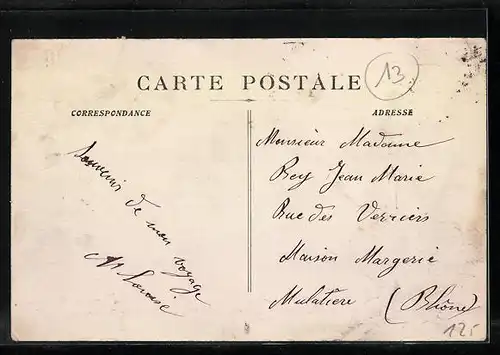 CARTE POSTALE
13
CORRESPONDANCE
ADRESSE
Souvenir de mon voyage
Monsieur Madame
Rey Jean Marie
Rue des Verriers
Maison Margerie
Mulatière (Rhône)
125